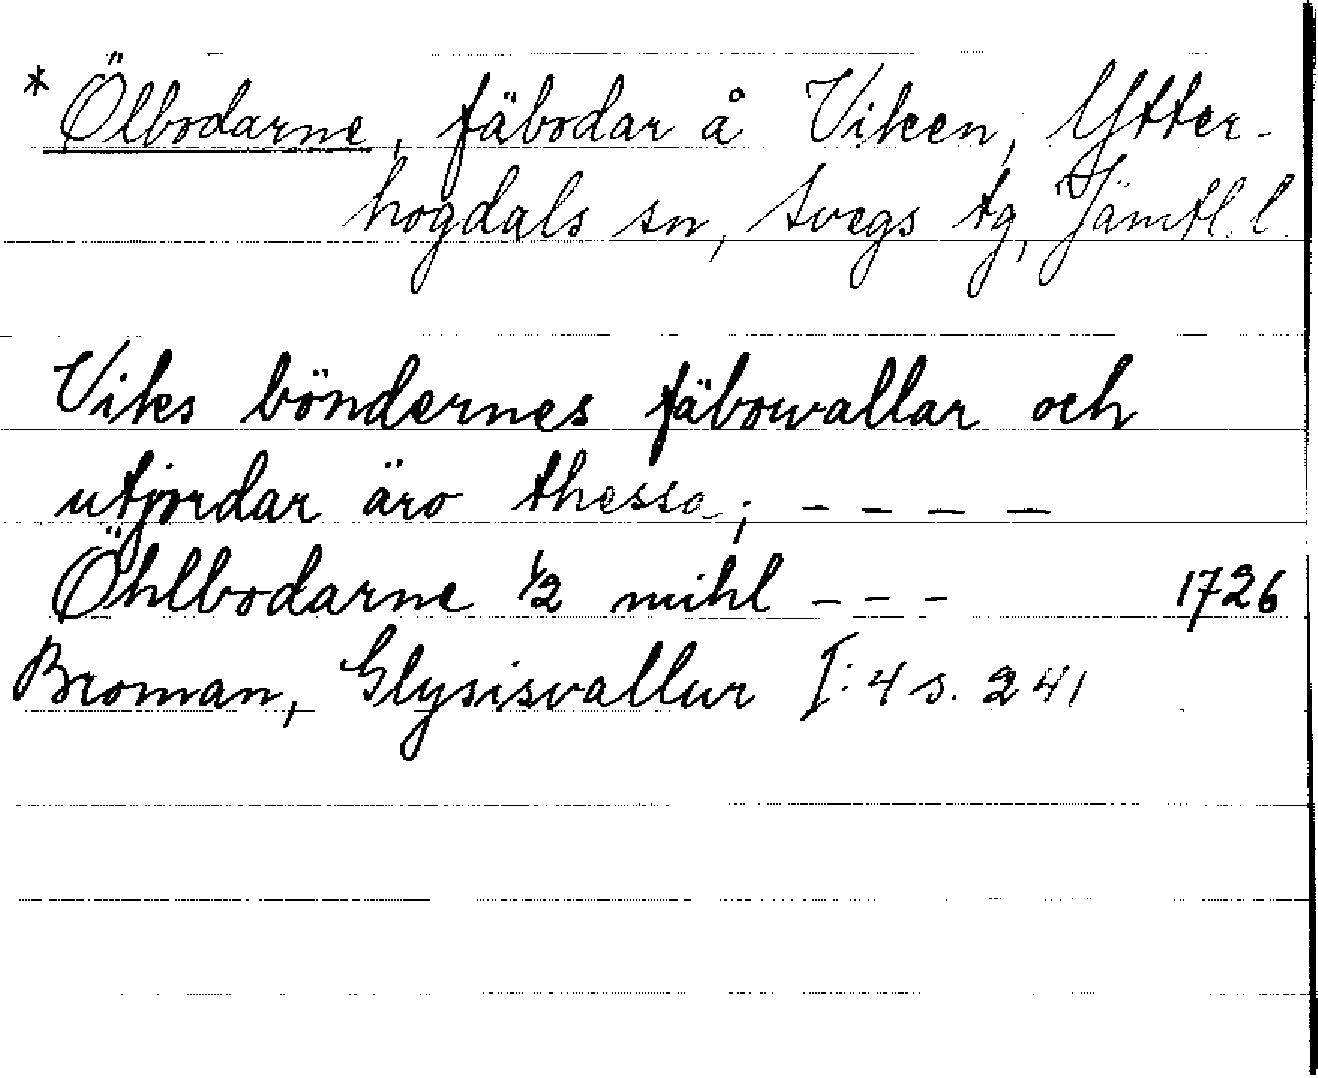 * Ölbodarne, fäbodar å Viken, Ytter-
hogdals sn, Svegs tg, Jämtl. l.
Viks böndernes fäbowallar och
utjordar äro thessa; - - - -
Öhlbodarne 1/2 mihl - - - 1726
Broman, Glysisvallur I: 4 s. 241